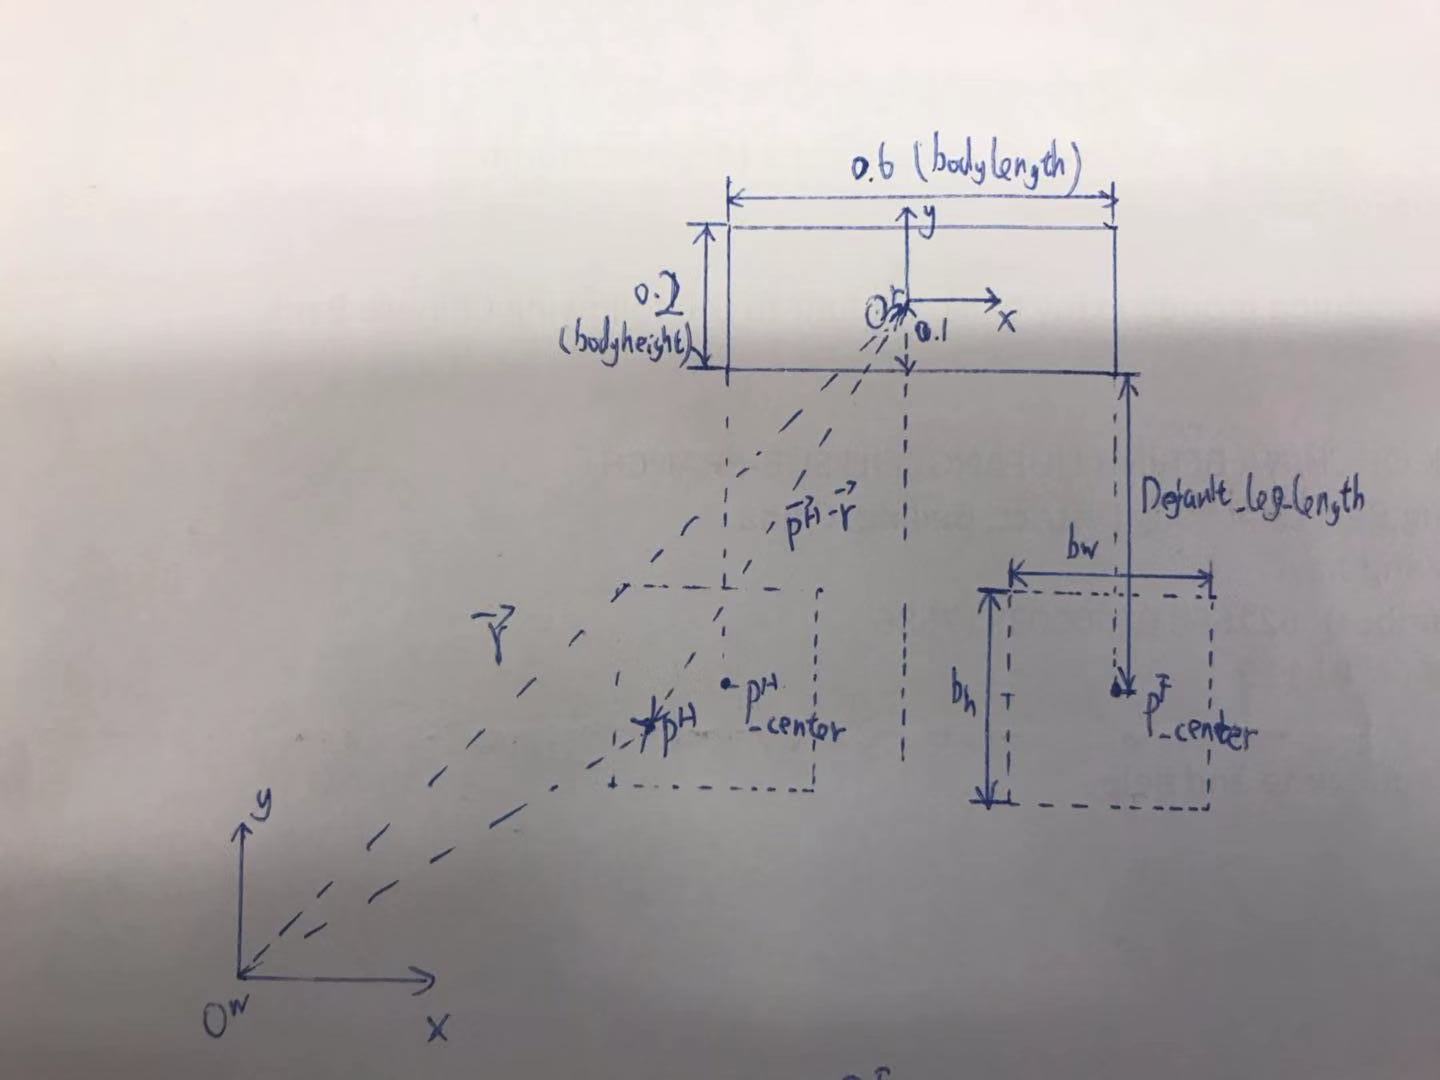 0.6 (bodylength)
y
0.2
(bodyheight)
x
0.1
Default_leg_length
p⃗ᴴ-r⃗
bw
r⃗
bh
pᴴ
_center
pᴴ
pᶠ
_center
y
Oᵂ
x